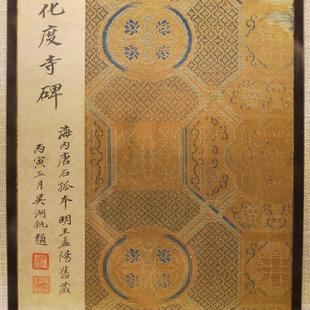 化度寺碑
海内唐石孤本 明王孟陽舊藏
丙寅五月吴湖帆題